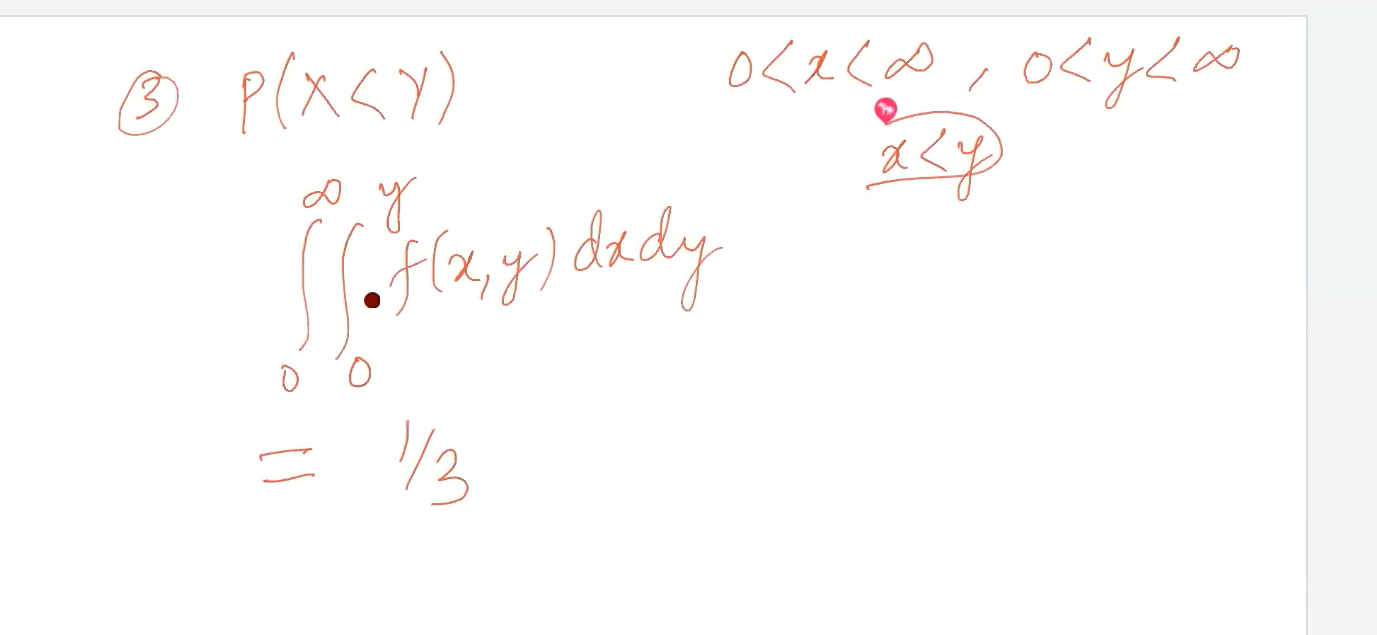 ③ P(X<Y) 0<x<∞ , 0<y<∞
x<y
∞ y
∫ ∫ f(x,y) dxdy
0 0
= 1/3